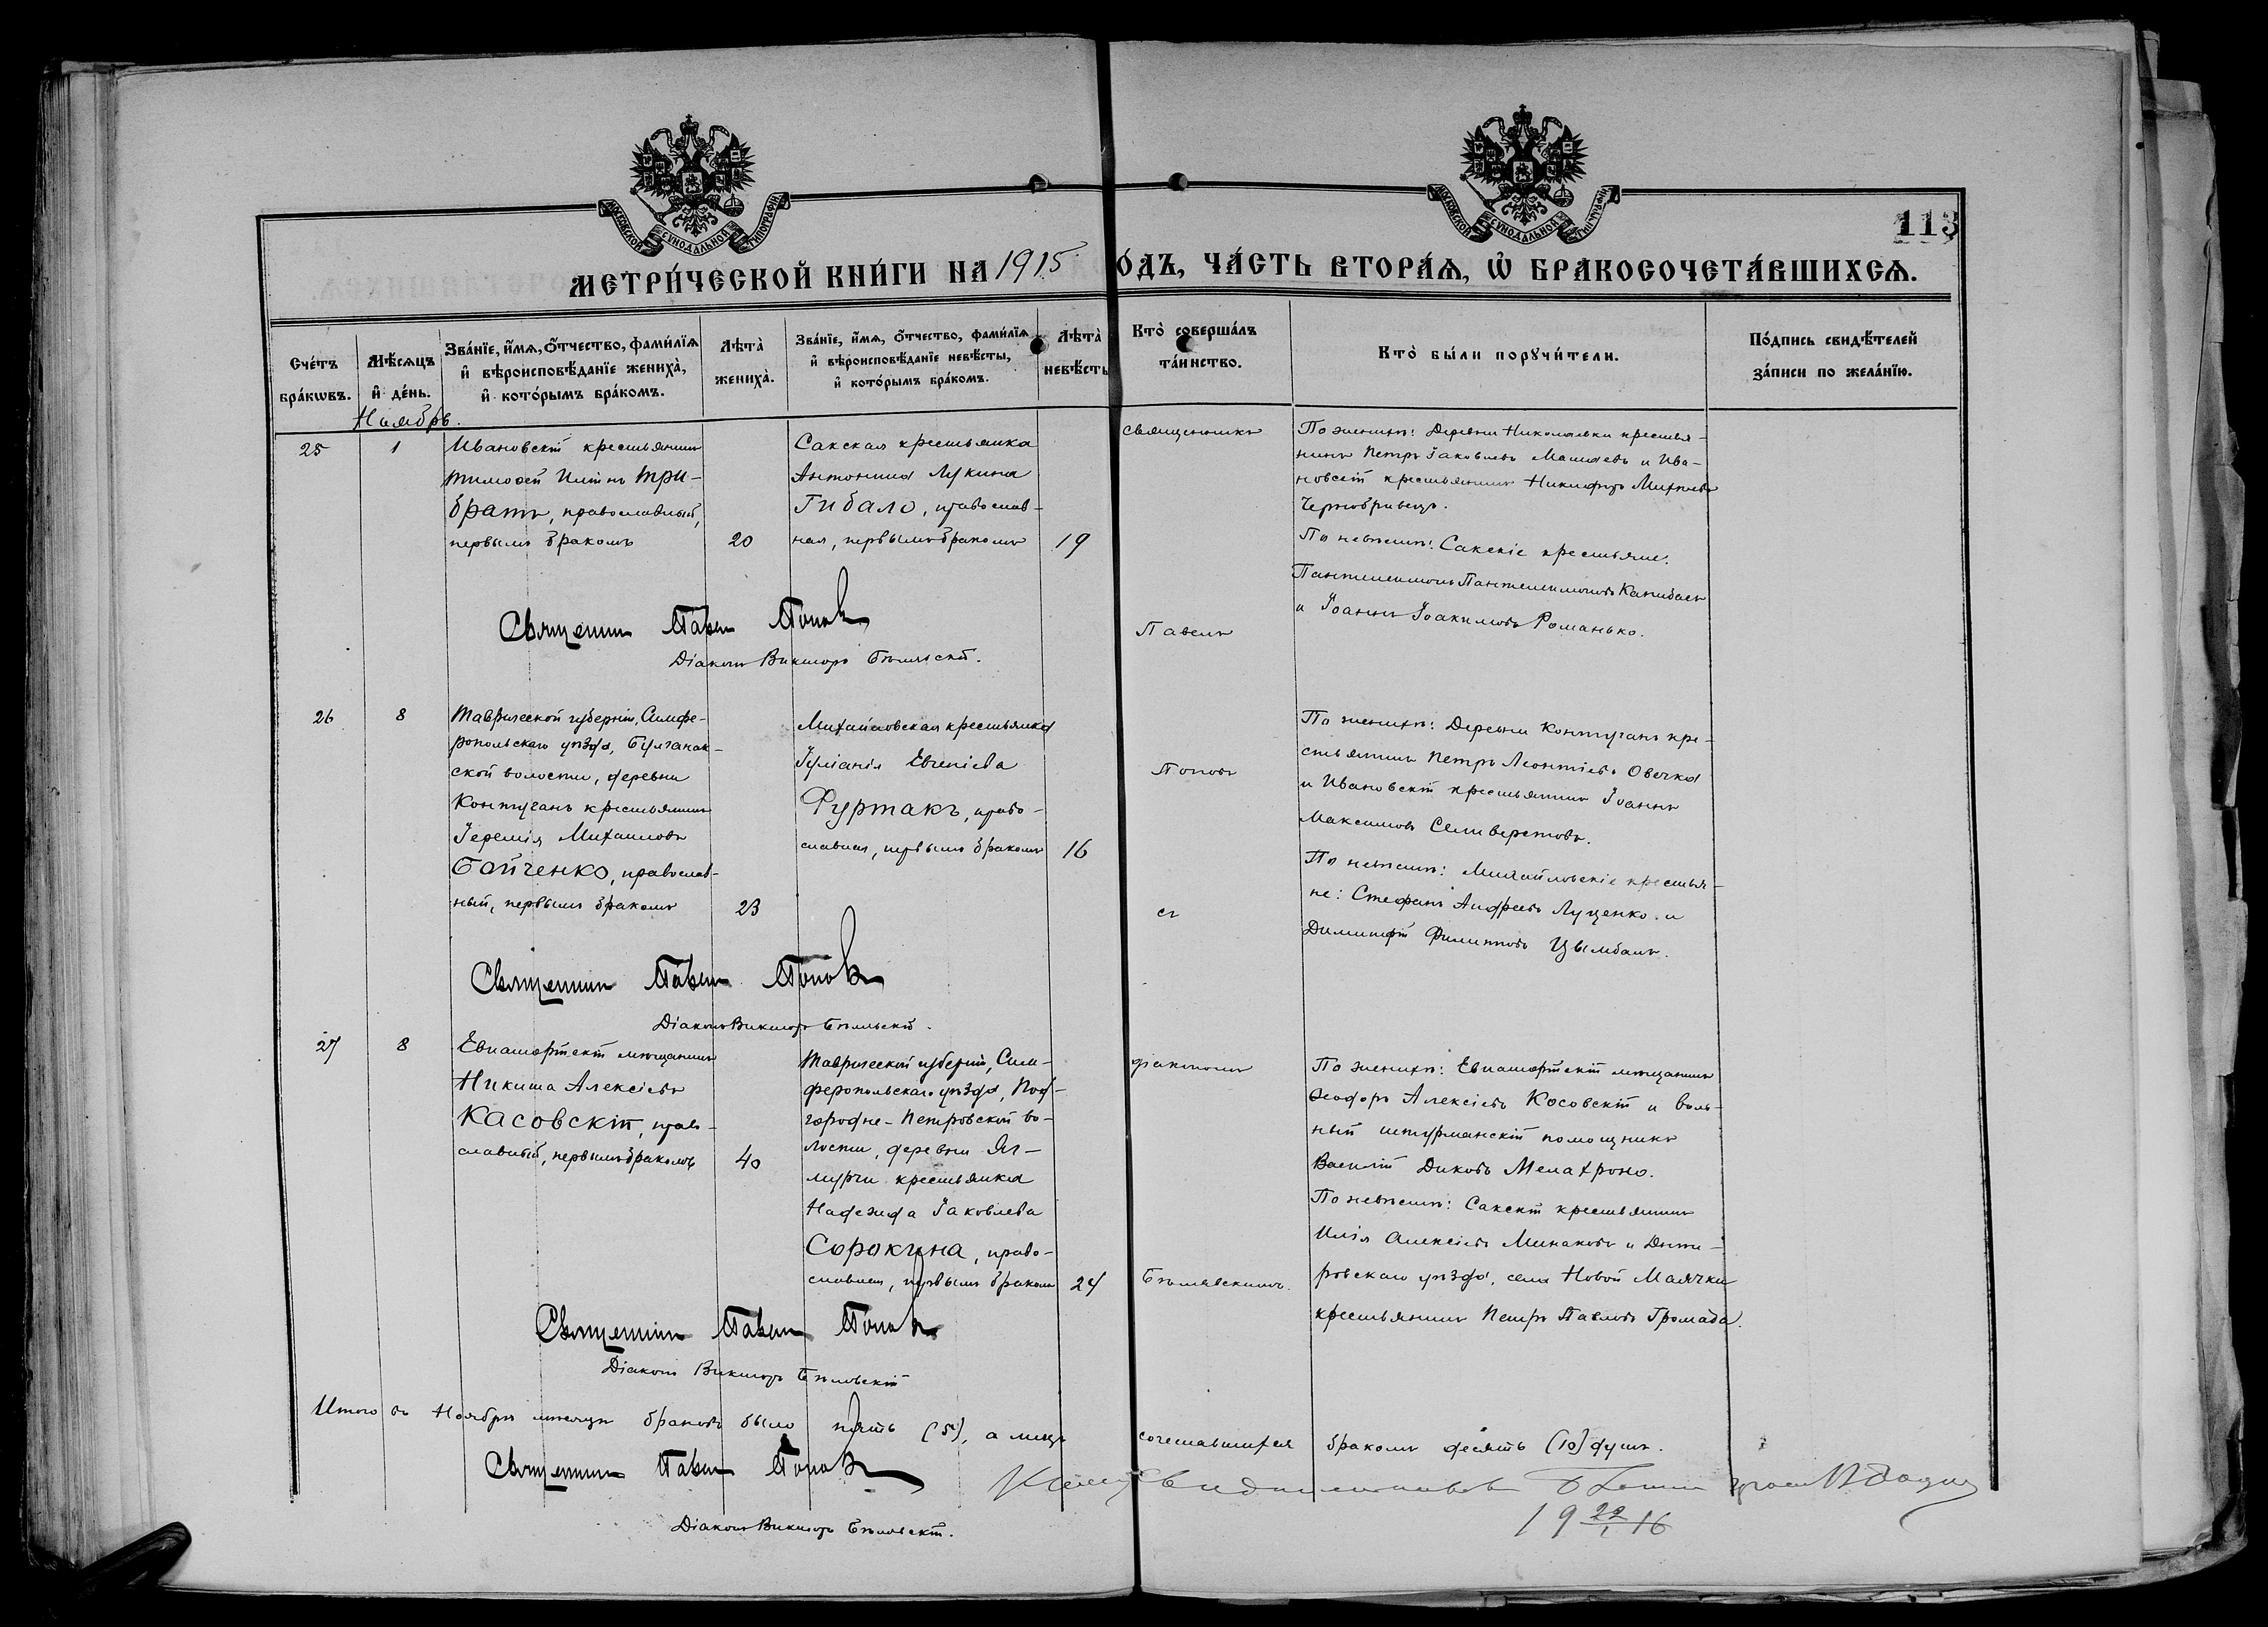 МОСКОВСКОЙ СѴНОДАЛЬНОЙ ТИПОГРАФІИ
МОСКОВСКОЙ СѴНОДАЛЬНОЙ ТИПОГРАФІИ
113
МЕТРИ́ЧЕСКОЙ КНИ́ГИ НА 1915 ОДЪ, ЧА́СТЬ ВТОРА́Я, Ѡ БРАКОСОЧЕТА́ВШИХСЯ.
Сче́тъ бра́кѡвъ.
Мѣ́сяцъ и де́нь.
Зва́нїе, и́мя, о́тчество, фами́лїя и вѣроисповѣ́данїе жениха̀, и кото́рымъ бра́комъ.
Лѣта̀ жениха̀.
Зва́нїе, и́мя, о́тчество, фами́лїя и вѣроисповѣ́данїе невѣ́сты, и кото́рымъ бра́комъ.
Лѣта̀ невѣ́сты
Кто̀ соверша́лъ та́инство.
Кто̀ бы́ли порꙋчи́тели.
По́дпись свидѣ́телей за́писи по жела́нїю.
Ноябрь.
25
1
Ивановскій крестьянинъ
Тимоѳей Иліинъ Три-
братъ, православный,
первымъ бракомъ
20
Сакская крестьянка
Антонина Лукина
Гибало, православ-
ная, первымъ бракомъ
19
Священникъ
По женихѣ: Деревни Николаевки крестья-
нинъ Петръ Іаковлевъ и Ива-
новскій крестьянинъ Никифоръ
Чернобривецъ.
По невѣстѣ: Сакскіе крестьяне:
Пантелеимонъ Пантелеимоновъ
и Іоаннъ Іоакимовъ Романько.
Священникъ Павелъ Поповъ
Діаконъ Викторъ Бѣлявскій.
Павелъ
26
8
Таврической губерніи, Симфе-
ропольскаго уѣзда, Булганак-
ской волости, деревни
Контуганъ крестьянинъ
Іеремія Михаиловъ
Бойченко, православ-
ный, первымъ бракомъ
23
Михайловская крестьянка
Іуліанія Евгеніева
Фуртакъ, право-
славная, первымъ бракомъ
16
Поповъ
съ
По женихѣ: Деревни Контуганъ кре-
стьянинъ Петръ Леонтіевъ Овечка
и Ивановскій крестьянинъ Іоаннъ
Максимовъ Селиверстовъ.
По невѣстѣ: Михайловскіе крестья-
не: Стефанъ Андреевъ Луценко и
Димитрій Филипповъ Цымбалъ.
Священникъ Павелъ Поповъ
Діаконъ Викторъ Бѣлявскій.
27
8
Евпаторійскій мѣщанинъ
Никита Алексіевъ
Касовскій, право-
славный, первымъ бракомъ
40
Таврической губерніи, Сим-
феропольскаго уѣзда, Под-
городне-Петровской во-
лости, деревни Ял-
мурчи крестьянка
Надежда Іаковлева
Сорокина, право-
славная, первымъ бракомъ
24
діакономъ
Бѣлявскимъ.
По женихѣ: Евпаторійскій мѣщанинъ
Ѳеодоръ Алексіевъ Косовскій и воль-
ный штурманскій помощникъ
Василій Диковъ Мелахроно.
По невѣстѣ: Сакскій крестьянинъ
Илія Алексіевъ Минаковъ и Днѣп-
ровскаго уѣзда, села Новой Маячки
крестьянинъ Петръ Павловъ Громада.
Священникъ Павелъ Поповъ
Діаконъ Викторъ Бѣлявскій
Итого въ Ноябрѣ мѣсяцѣ браковъ было пять (5), а лицъ сочетавшихся бракомъ десять (10) душъ.
Священникъ Павелъ Поповъ
Діаконъ Викторъ Бѣлявскій.
19 22/1 16